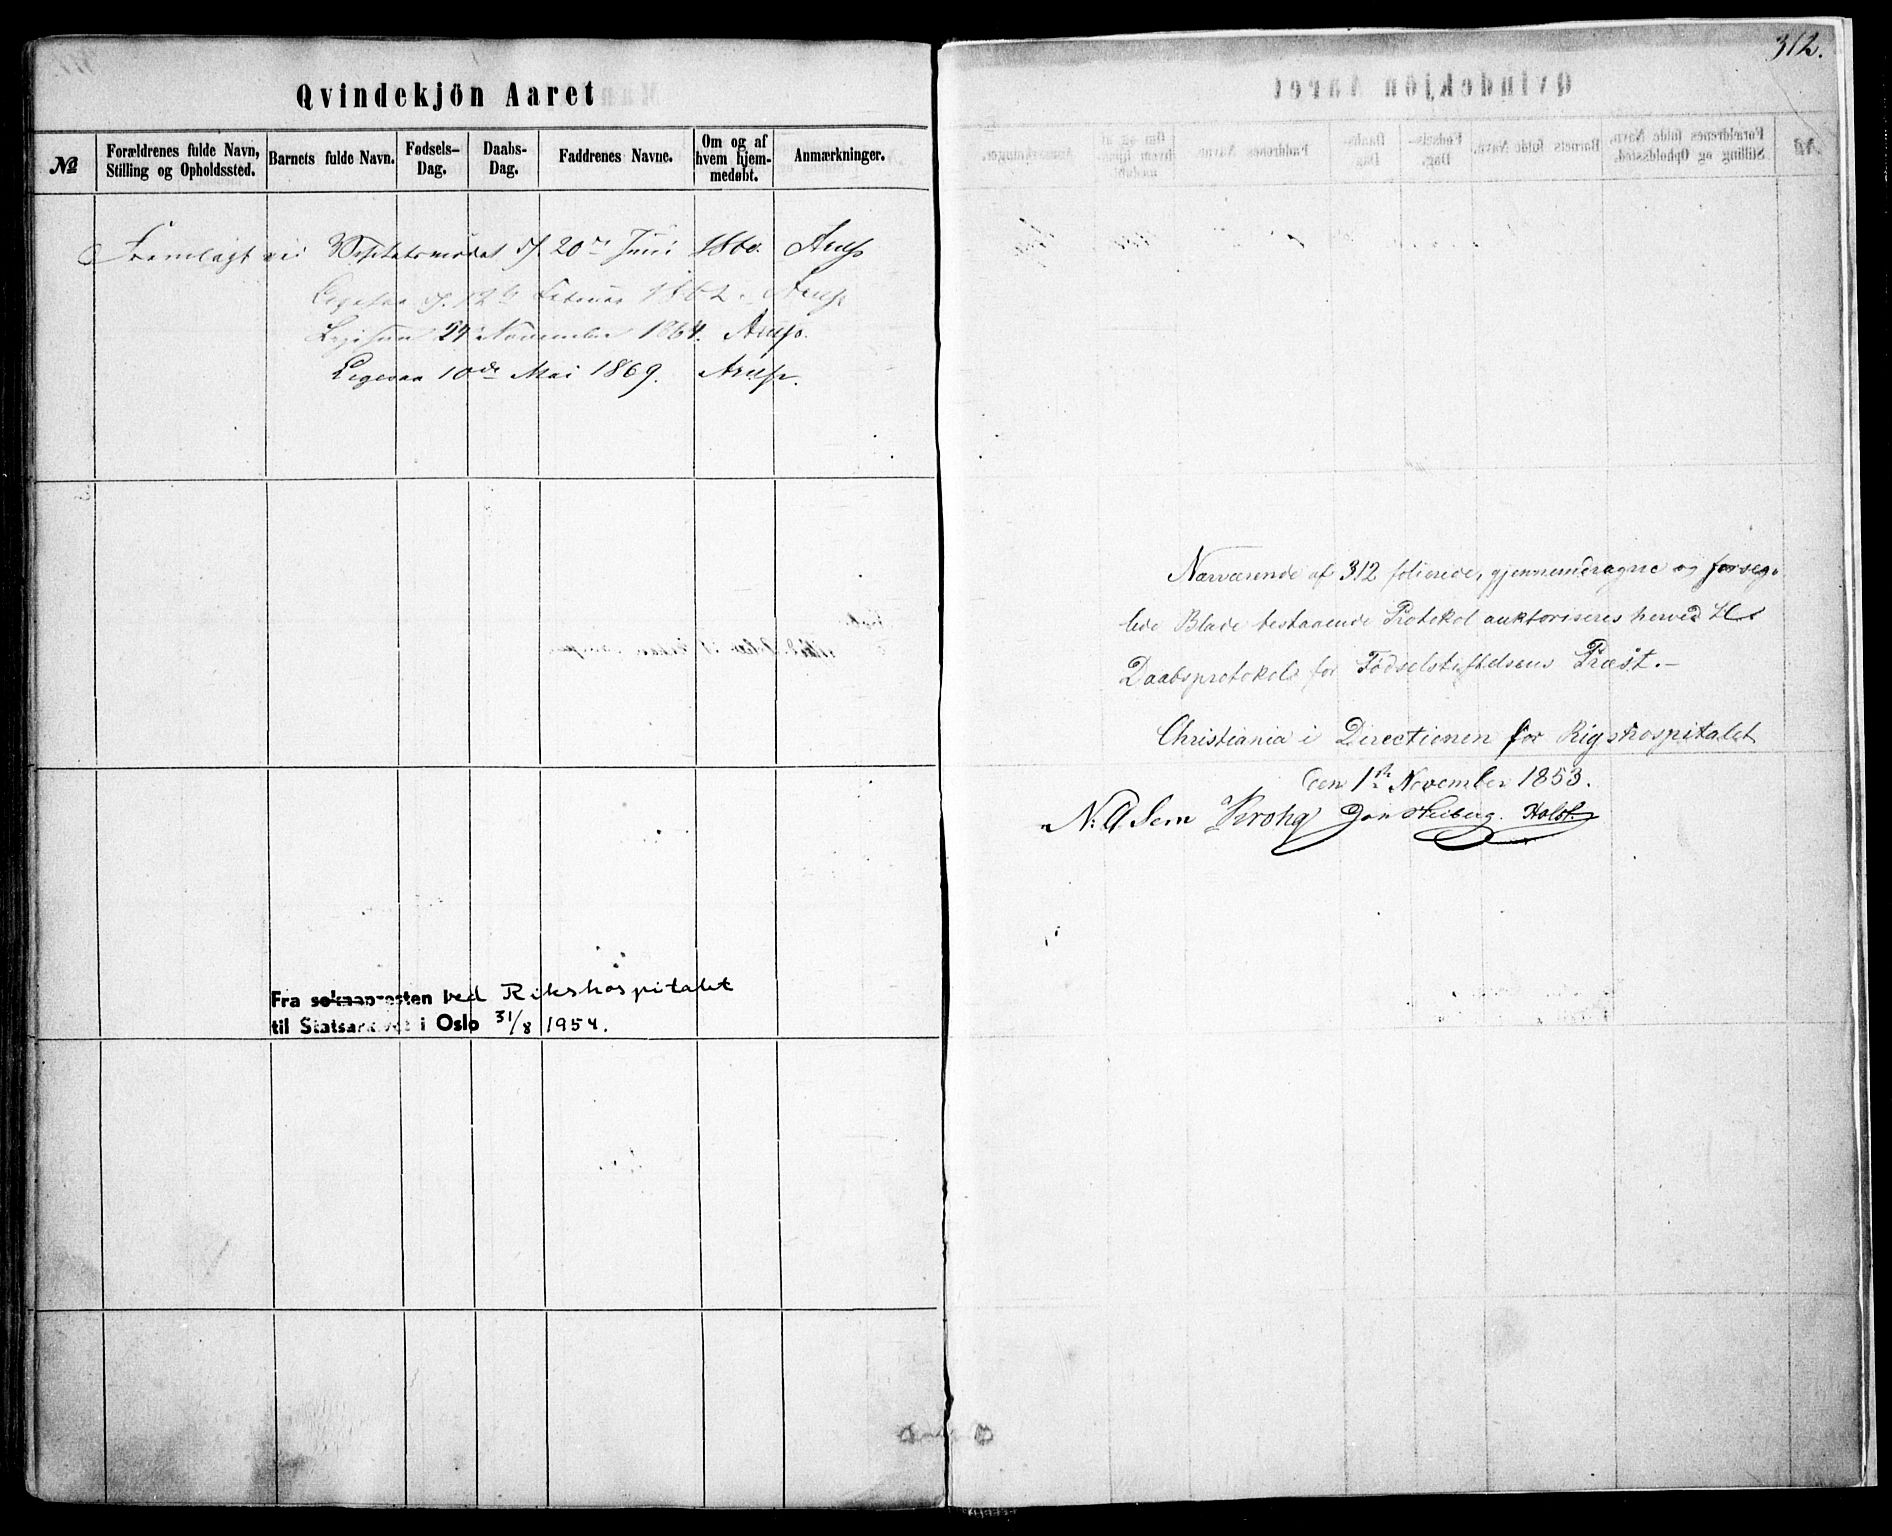 Qvindekjön Aaret
No
Forældrenes fulde Navn, Stilling og Opholdssted.
Barnets fulde Navn.
Fødsels-Dag.
Daabs-Dag.
Faddrenes Navne.
Om og af hvem hjemmedøbt.
Anmærkninger.
Fremlagt ved Visitatsmødet d. 20de Juni 1860. Arup
Ligesaa d. 12te Februar 1862. Arup
Ligesaa 24 November 1864. Arup.
Ligesaa 10de Mai 1869. Arup.
Fra soknepresten ved Rikshospitalet
til Statsarkivet i Oslo 31/8 1954.
312.
Nærværende af 312 folierede, gjennemdragne og forseg-
lede Blade bestaaende Protokol auktoriseres herved til
Daabsprotokol for Fødselsstiftelsens Præst.-
Christiania i Directionen for Rigshospitalet
den 1ste November 1853.
Krohg Heiberg. Holst.